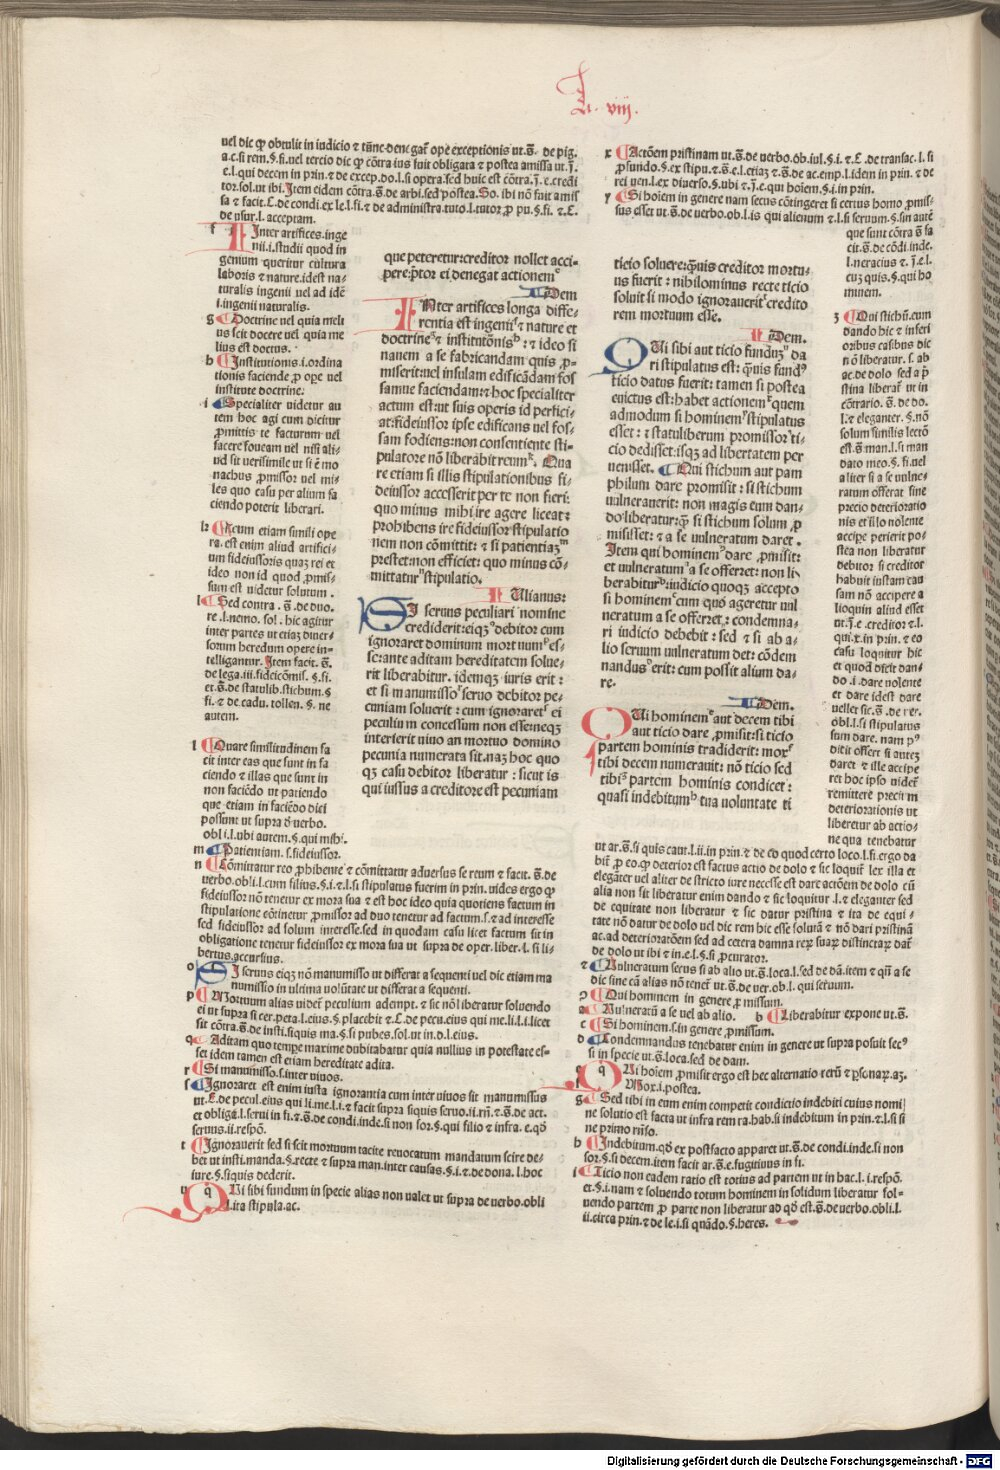 L. viij.
uel dic ꝙ obtulit in iudicio ⁊ tūnc denegat̄ ope exceptionis ut.ḡ. de pig.
a.c.si rem.§.fi.uel tercio dic ꝙ cōtra ius fuit obligata ⁊ postea amissa ut.j̄.
e.l.qui decem in prin.⁊ de excep.do.l.si opera.sed huic est cōtra.j̄.e.credi
tor.sol.ut ibi. Item eidem cōtra.ḡ.de arbi.sed postea. So. ibi nō fuit amis
sa ⁊ facit.C.de condi.ex le.l.fi.⁊ de administra.tuto.l.tutor ꝓ pu.§.fi.⁊.C.
de usur.l. acceptam.
f Inter artifices.inge
nii.i.studii quod in
genium queritur cultura
laboris ⁊ nature.idest na
turalis ingenii uel ad idē
i.ingenii naturalis.
g Doctrine uel quia meli
us scit docere uel quia me
lius est doctus.
h Institutionis.i.ordina
tionis faciende ꝓ ope uel
institute doctrine.
i Specialiter uidetur au
tem hoc agi cum dicitur
ꝓmittis te facturum uel
facere foueam uel nisi ali
ud sit uerisimile ut si ē mo
nachus ꝓmissor uel mi
les quo casu per alium fa
ciendo poterit liberari.
k Reum etiam simili ope
ra. est enim aliud artifici
um fideiussoris quaꝫ rei et
ideo non id quod ꝓmis
sum est uidetur solutum.
l Sed contra .ḡ.de duo.
re .l.nemo. sol. hic agitur
inter partes ut etiaꝫ diuer
sorum heredum opere in
telligantur. Item facit.ḡ.
de lega.iii.fideicōmis. §.si.
et.ḡ.de statulib.stichum.§
fi. ⁊ de cadu. tollen. §. ne
autem.
l Quare similitudinem fa
cit inter eas que sunt in fa
ciendo ⁊ illas que sunt in
non faciēdo ut patiendo
que etiam in faciēdo dici
possunt ut supra d̄ uerbo.
obli.l.ubi autem.§.qui mihi.
m Patientiam. s.fideiussor.
n Cōmittatur reo ꝓhibente ⁊ cōmittatur aduersus se reum ⁊ facit. ḡ.de
uerbo.obli.l.cum filius.§.i.⁊.l.si stipulatus fuerim in prin. uides ergo ꝙ
fideiussor nō tenetur ex mora sua ⁊ est hoc ideo quia quotiens factum in
stipulatione cōtinetur ꝓmissor ad duo tenetur ad factum.s.⁊ ad interesse
sed fideiussor ad solum interesse.sed in quodam casu licet factum sit in
obligatione tenetur fideiussor ex mora sua ut supra de oper.liber.l. si li
bertus.accursius.
o SI seruus eiqꝫ nō manumisso ut differat a sequenti uel dic etiam ma
numisso in ultima uolūtate ut differat a sequenti.
p Mortuum alias uidet̄ peculium adempt. ⁊ sic nō liberatur soluendo
ei ut supra si cer.peta.l.eius.§.placebit ⁊.C.de pecu.eius qui me.li.l.i.licet
sit cōtra.ḡ.de insti.siquis ma.§.si pubes.sol.ut in.d.l.eius.
q Aditam quo tempe maxime dubitabatur quia nullius in potestate es-
set idem tamen est etiam hereditate adita.
r Si manumisso.s.inter uiuos.
s Ignoraret est enim iusta ignorantia cum inter uiuos sit manumissus
ut.C.de pecul.eius qui li.me.l.i.⁊ facit supra siquis seruo.ii.rn̄.⁊.ḡ.de act.
et obliga.l.serui in fi.⁊.ḡ.de condi.inde.si non sor.§.qui filio ⁊ infra. e.qd̄
seruus.ii.respō.
t Ignorauerit sed si scit mortuum tacite reuocatum mandatum scire de-
bet ut insti.manda.§.recte ⁊ supra man.inter causas.§.i.⁊ de dona.l.hoc
iure.§.siquis dederit.
u QVi sibi fundum in specie alias non ualet ut supra de uerbo.obli
l.ita stipula.ac.
que peteretur:creditor nollet acci-
pere:p̄tor ei denegat actionemᵉ
Idem
INter artifices longa diffe-
rentia est ingenii ⁊ nature et
doctrine ⁊ institutōnisʰ: ⁊ ideo si
nauem a se fabricandam quis ꝓ-
miserit:uel insulam edificādam fos
samue faciendam:⁊ hoc specialiter
actum est:ut suis operis id perfici-
at:fideiussor ipse edificans uel fos-
sam fodiens:non consentiente sti-
pulatore nō liberabit reumᵏ. Qua
re etiam si illis stipulationibus fi-
deiussor accesserit per te non fieri:
quo minus mihi ire agere liceat:
prohibens ire fideiussor stipulatio
nem non cōmittit: ⁊ si patientiaꝫᵐ
prestet:non efficiet: quo minus cō-
mittaturⁿ stipulatio.
IUlianus:
SI seruus peculiari nomine
crediderit:eiqꝫᵒ debitor cum
ignoraret dominum mortuumᵖ es-
se:ante aditam hereditatem solue-
rit liberabitur. idemqꝫ iuris erit:
et si manumissoʳ seruo debitor pe-
cuniam soluerit : cum ignoraretˢ ei
peculium concessum non esse:neqꝫ
interierit uiuo an mortuo domino
pecunia numerata sit.naꝫ hoc quo
qꝫ casu debitor liberatur : sicut is
qui iussus a creditore est pecuniam
ticio soluere:quis creditor mortu-
us fuerit : nihilominus recte ticio
soluit si modo ignorauerit credito
rem mortuum esse.
Idem.
QVi sibi aut ticio fundum da
ri stipulatus est: quis fundꝰ
ticio datus fuerit: tamen si postea
euictus est:habet actionem quem
admodum si hominem stipulatus
esset: ⁊ statuliberum promissor ti-
cio dedisset:isqꝫ ad libertatem per
uenisset. Qui stichum aut pam
philum dare promisit: si stichum
uulnerauerit: non magis eum dan-
do liberatur:ꝙ si stichum solum ꝓ
misisset: ⁊ a se uulneratum daret.
Item qui hominem dare ꝓmisit:
et uulneratum a se offerret: non li
berabitur: iudicio quoqꝫ accepto
si hominem cum quo ageretur uul
neratum a se offerret: condemna-
ri iudicio debebit : sed ⁊ si ab a-
lio seruum uulneratum det: cōdem
nandus erit: cum possit alium da-
re.
Idem.
QVi hominem aut decem tibi
aut ticio dare ꝓmisit:si ticio
partem hominis tradiderit: mox
tibi decem numerauit: nō ticio sed
tibi partem hominis condicet:
quasi indebitumʰ tua uoluntate ti
x Actōem pristinam ut.ḡ.de uerbo.ob.iul.§.i.⁊.C.de transac.l.si
ꝓfundo.§.ex stipu.⁊.ḡ.e.l.etiaꝫ ⁊.ḡ.de ac.emp.l.idem in prin.⁊ de
rei uen.l.ex diuerso.§.ubi ⁊.j̄.e.qui hoiem.§.i.in prin.
y Si hoiem in genere nam secus cōtingeret si certus homo ꝓmis-
sus esset ut.ḡ.de uerbo.ob.l.is qui alienum ⁊.l.si seruum.§.sin autē
que sunt cōtra ḡ sa
cit.ḡ.de cōdi.inde.
l.neracius ⁊.j̄.e.l.
cuꝫ quis.§.qui ho
minem.
z Qui stichū.cum
dando hic ⁊ inferi
oribus casibus dic
nō liberatur.s.ab
ac.de dolo sed a p̄
stina liberat̄ ut in
cōtrario. ḡ.de do.
l.⁊ eleganter.§.nō
solum similis lectō
est.ḡ.man.l.si man
dato meo.§.fi.uel
aliter si a se uulne-
ratum offerat sine
precio deterioratio
nis et illo nolente
accipe perierit po-
stea non liberatur
debitor si creditor
habuit iustam cau
sam nō accipere a
lioquin aliud esset
ut.j̄.e.creditor ⁊.l.
qui.x.in prin.⁊ eo
casu loquitur hic
et quod dicit dan-
do .i.dare nolente
et dare idest dare
uellet sic.ḡ.de rer.
obl.l.si stipulatus
sum dare. nam ꝙ
dicit offert si autē
daret ⁊ ille accipe
ret hoc ipso uidet̄
remittere precium
deteriorationis ut
liberetur ab actio-
ne qua tenebatur
ut ar.ḡ.si quis caut.l.ii.in prin.⁊ de eo quod certo loco.l.fi.ergo da
bit̄ ꝓ eo.ꝙ deterior est factus actio de dolo ⁊ sic loquit̄ lex illa et
elegāter uel aliter de stricto iure necesse est dare actōem de dolo cū
alia non sit liberatur enim dando ⁊ sic loquitur .l.⁊ eleganter sed
de equitate non liberatur ⁊ sic datur pristina ⁊ ita de equi-
tate nō datur de dolo uel dic rem hic esse solutā ⁊ nō dari pristinā
ac.ad deterioratōem sed ad cetera damna reꝝ suaꝝ distinctaꝝ dat̄
de dolo ut ibi ⁊ in.e.l.§.si ꝓcurator.
⁊ Uulneratum secus si ab alio ut.ḡ.loca.l.sed de dā.item ⁊ qn̄ a se
dic sine cā alias nō tenet̄ ut.ḡ.de uer.ob.l. qui seruum.
Qui hominem in genere ꝓmissum.
a Uulneratū a se uel ab alio. b Liberabitur expone ut.ḡ.
c Si hominem.s.in genere ꝓmissum.
d Condemnandus tenebatur enim in genere ut supra posuit secꝰ
si in specie ut.ḡ.loca.sed de dam.
QVi hoiem ꝓmisit ergo est hec alternatio rerū ⁊ ꝑsonaꝝ.aꝫ.
f Mox.i.postea.
g Sed tibi in eum enim competit condicio indebiti cuius nomi
ne solutio est facta ut infra rem ra.hab.si indebitum in prin.⁊.l.si si
ne primo rn̄so.
h Indebitum.qd̄ ex postfacto apparet ut.ḡ.de condi.inde.si non
sor.§.si decem.item facit ar.ḡ.e.fugitiuus in fi.
i Ticio non eadem ratio est totius ad partem ut in hac.l.i.respō.
et.§.i.nam ⁊ soluendo totum hominem in solidum liberatur sol-
uendo partem ꝓ parte non liberatur ad qd̄ est.ḡ.de uerbo.obli.l.
ii.circa prin.⁊ de le.i.si quādo.§.heres.
Digitalisierung gefördert durch die Deutsche Forschungsgemeinschaft - DFG